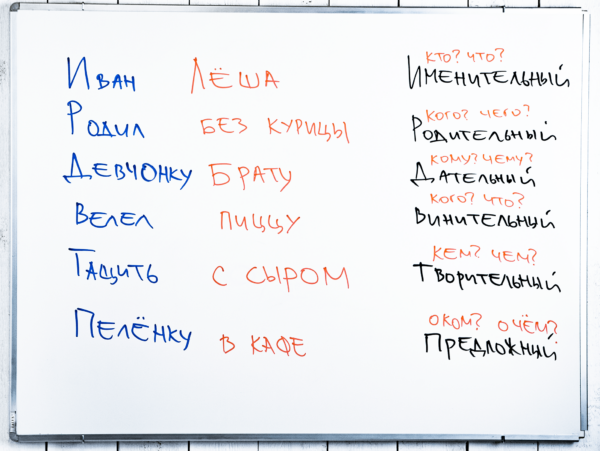 Кто? Что?
Иван Лёша Именительный
Кого? Чего?
Родил без курицы Родительный
Кому? Чему?
Девчонку брату Дательный
Кого? Что?
Велел пиццу Винительный
Кем? Чем?
Тащить с сыром Творительный
О ком? О чём?
Пелёнку в кафе Предложный